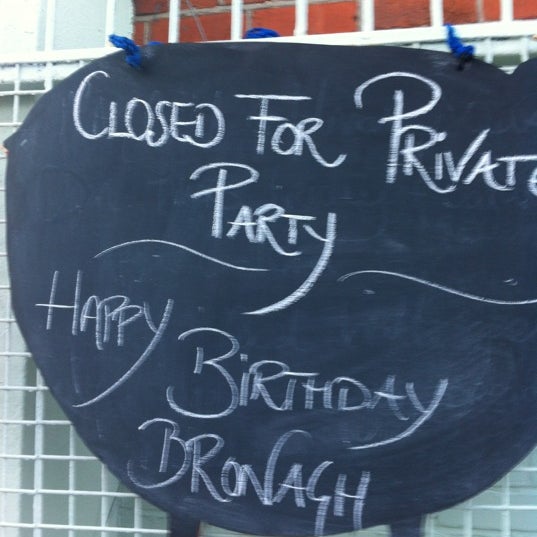 Closed For Private
Party
Happy
Birthday
Bronagh